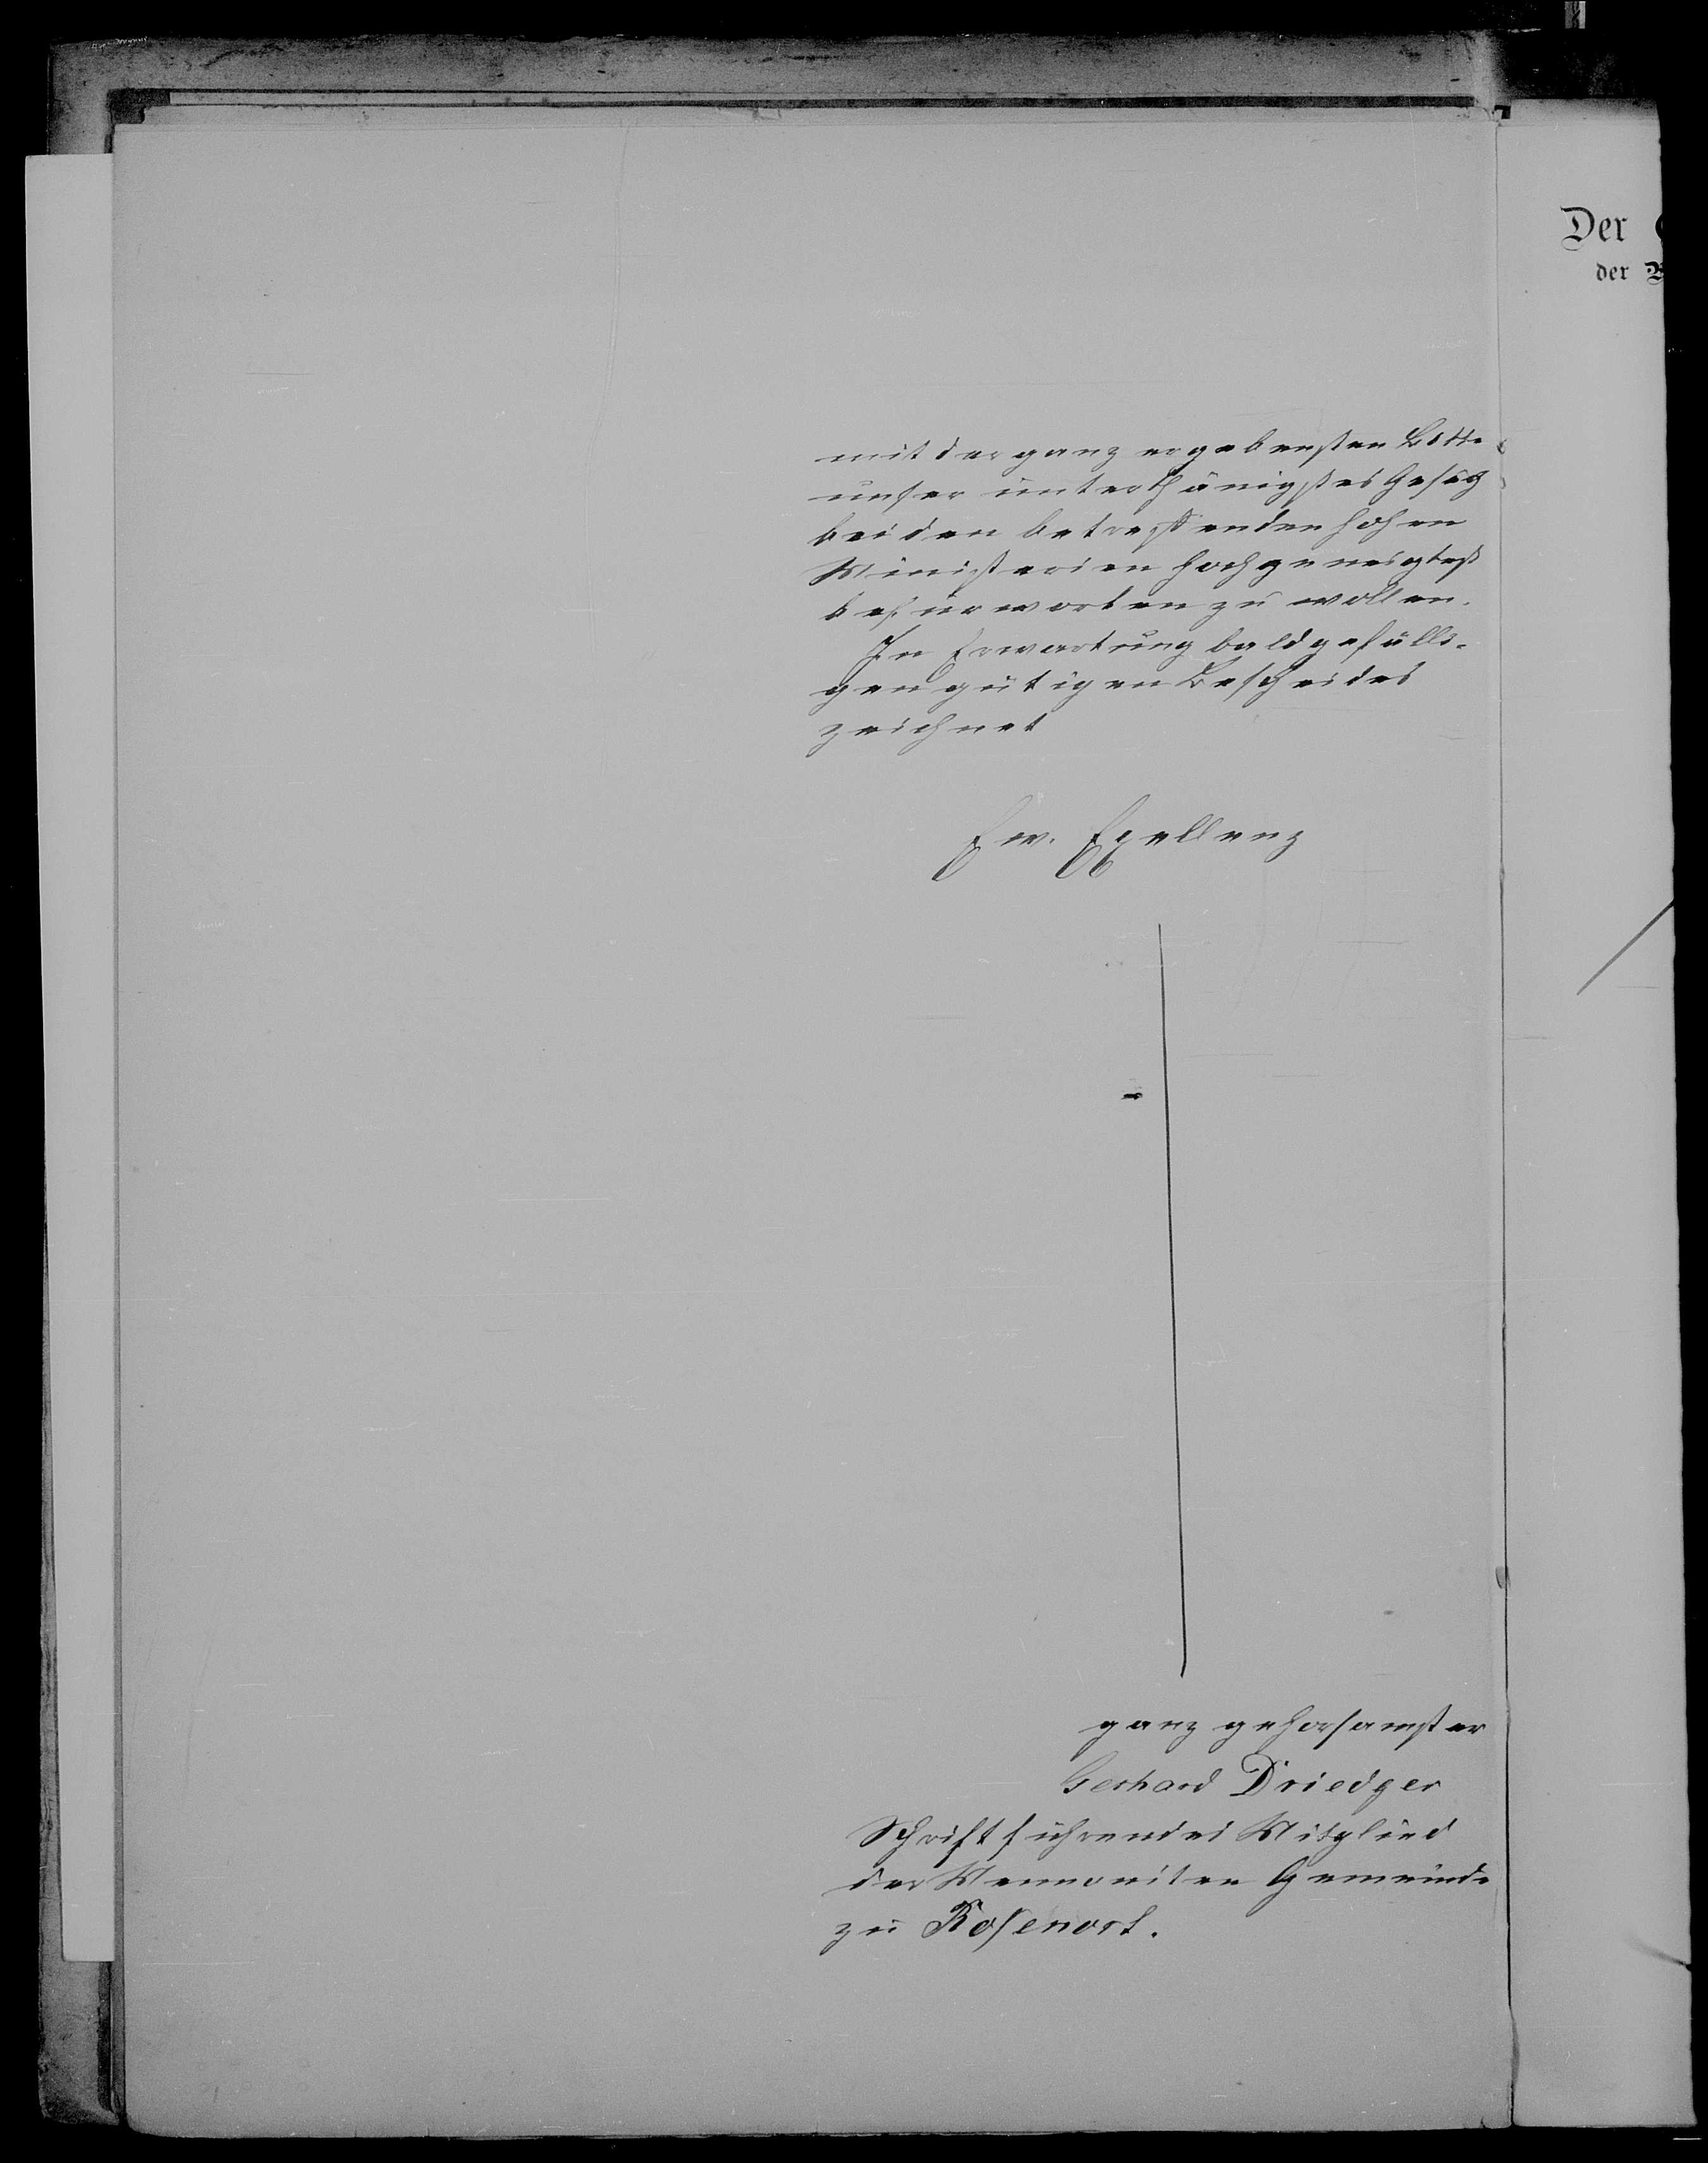 mit der ganz ergebensten Bitte
unser unterthänigstes Gesuch
bei den betreffenden hohen
Ministerien hochgeneigtest
befürworten zu wollen.
In Erwartung baldgefälli-
gen gütigen Bescheides
zeichnet
Ew. Exellenz
ganz gehorsamster
Gerhard Driedger
Schriftführendes Mitglied
der Mennoniten Gemeinde
zu Rosenort.
Der
der